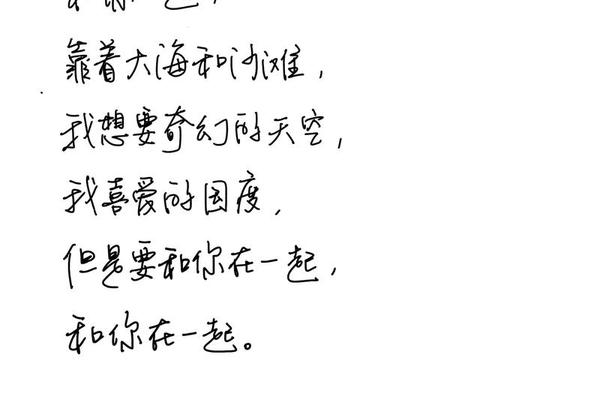 和你一起，
靠着大海和沙滩，
我想要奇幻的天空，
我喜爱的国度，
但是要和你在一起，
和你在一起。